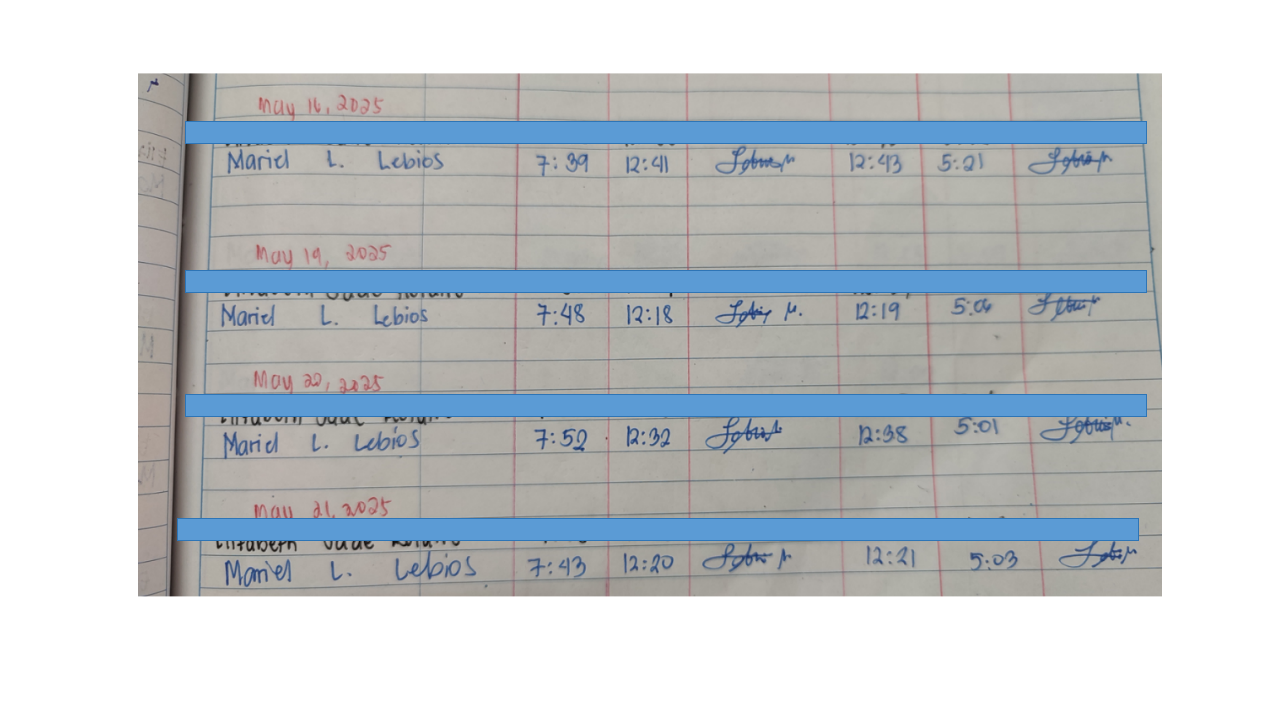 May 16, 2025
Mariel L. Lebios 7:39 12:41 12:43 5:21
May 19, 2025
Mariel L. Lebios 7:48 12:18 12:19 5:04
May 20, 2025
Mariel L. Lebios 7:52 12:32 12:38 5:01
May 21, 2025
Mariel L. Lebios 7:43 12:20 12:21 5:03